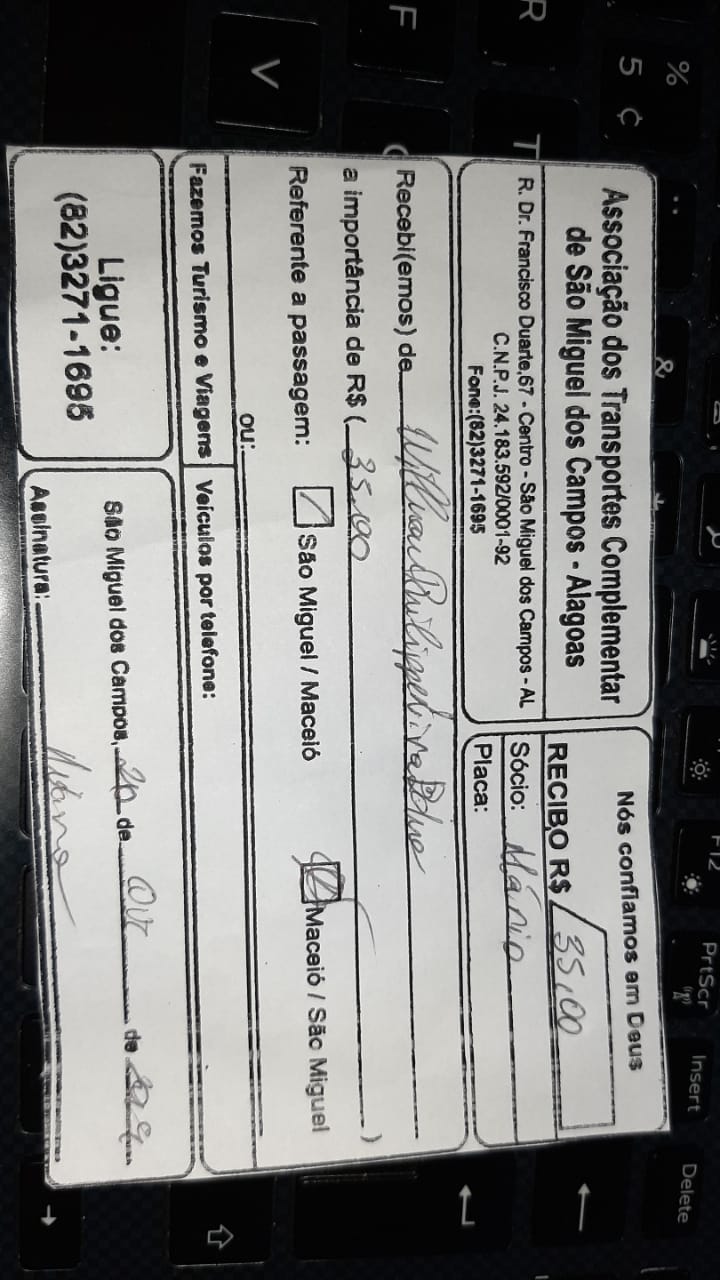 Associação dos Transportes Complementar
de São Miguel dos Campos - Alagoas
R. Dr. Francisco Duarte,67 - Centro - São Miguel dos Campos - AL
C.N.P.J. 24.183.592/0001-92
Fone:(82)3271-1695
Nós confiamos em Deus
RECIBO R$ 35,00
Sócio: Mário
Placa:
Recebi(emos) de
a importância de R$ ( 35,00 )
Referente a passagem: São Miguel / Maceió Maceió / São Miguel
ou:
Fazemos Turismo e Viagens
Veículos por telefone:
Ligue:
(82)3271-1695
São Miguel dos Campos, de de
Assinatura:
% 5 ¢
R
F
T
V
&
F12
PrtScr
Insert
Delete